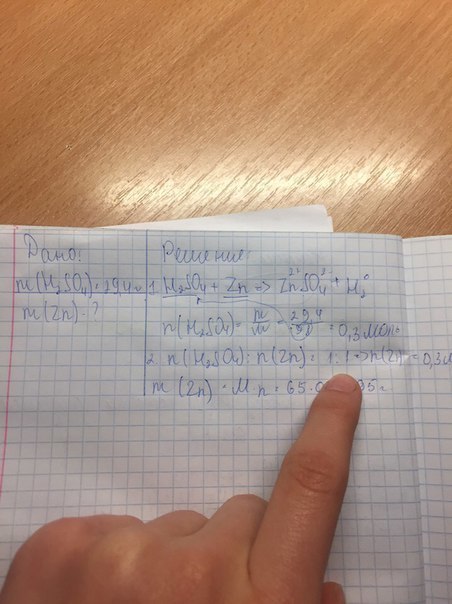 Дано:
m(H₂SO₄)=29,4г
m(Zn)-?
Решение:
1. H₂SO₄ + Zn => ZnSO₄ + H₂⁰
n(H₂SO₄) = m/M = 29,4/98 = 0,3 моль
2. n(H₂SO₄) : n(Zn) = 1:1 => n(Zn) = 0,3м
m(Zn) = M·n = 65·0